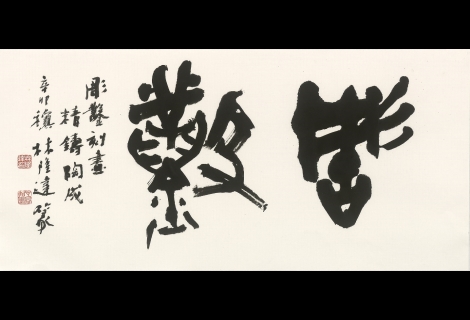 彫鑿
彫鑿刻畫
精鑄陶成
辛卯穐林隆達篆